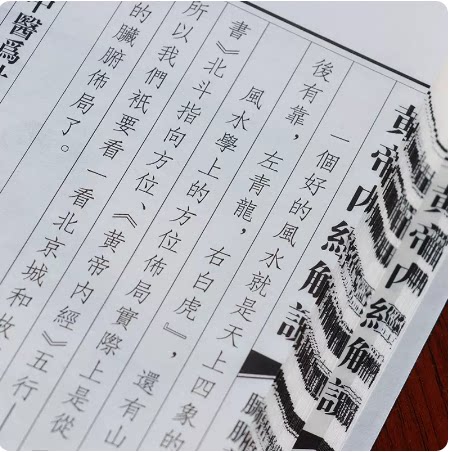 黃帝內經解讀
黃帝內經解
一個好的風水就是天上四象的
後有靠，左青龍，右白虎』，還有山
風水學上的方位佈局實際上是從
書》《北斗指向方位、《黃帝內經》五行—
所以我們祇要看一看北京城和故
的臟腑佈局了。
中醫爲